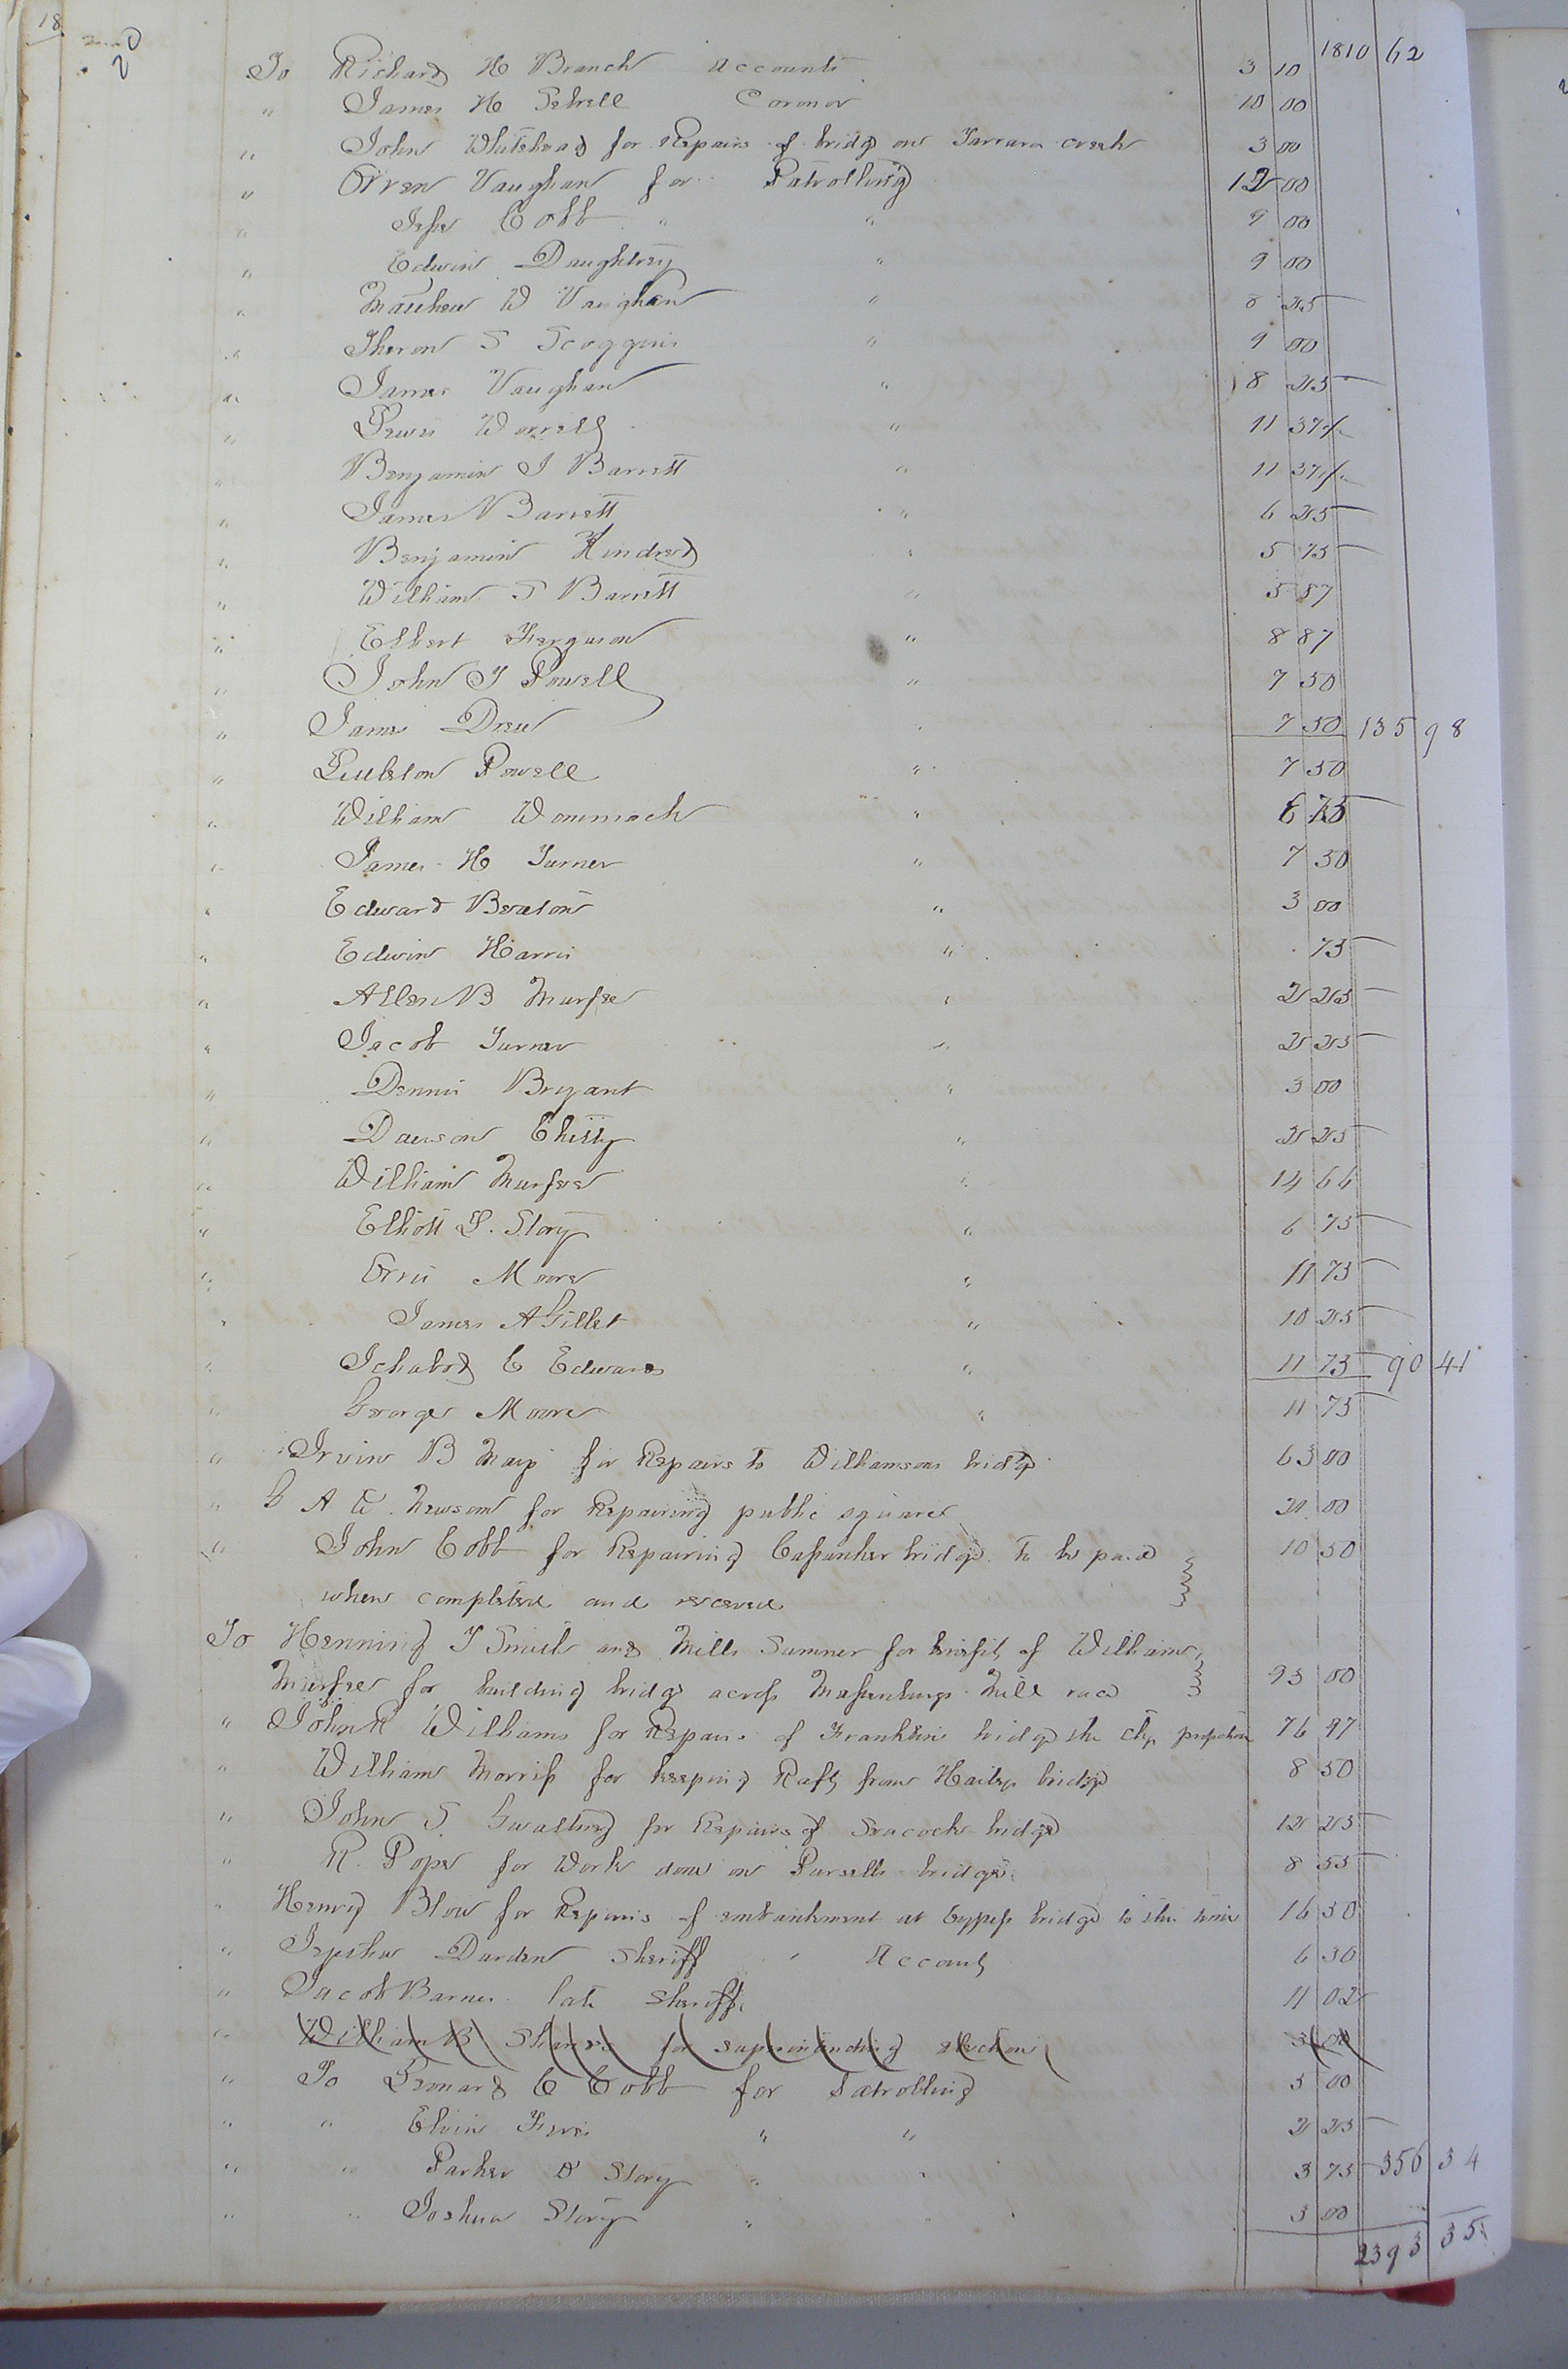 18
1810 62
To Richard H Branch Accounts 3 10
" James H Sebrell Coroner 10 00
" John Whitehead for Repairs of bridg on Tarrara creek 3 00
" Orren Vaughan for Patrolling 12 00
" Jesse Cobb " " 9 00
" Edwin Daughtrey " 9 00
" Matthew W Vaughan " 8 25
" Theron S Scoggins " 9 00
" James Vaughan " 8 25
" Lewis Worrell " 11 37½
" Benjamin J Barrett " 11 37½
" James Barrett " 6 25
" Benjamin Kindred " 5 75
" William S Barrett " 5 87
" Elbert Ferguson " 8 87
" John T Powell " 7 50
" James Drew " 7 50 135 98
" Littleton Powell " 7 50
" William Wommack " 6 75
" James H Turner " 7 50
" Edward Beaton " 3 00
" Edwin Harris " 75
" Allen B Murfee " 2 25
" Jacob Turner " 2 25
" Dennis Bryant " 3 00
" Dawson Chitty " 2 25
" William Murfee " 14 66
" Elliott L. Story " 6 75
" Orris Moore " 11 75
" James A Gillet " 10 25
" Ichabod C Edwards " 11 75 90 41
" George Moore " 11 75
" Irvin B May for Repairs to Williamsons bridge 63 00
" G A W. Newsom for Repairing public square 20 00
" John Cobb for Repairing bridge to be paid 10 50
when completed and received
To Henning T Smith and Mills Sumner for benefit of William
Murfee for building bridge across Massenburgs Mill race 93 00
" John R Williams for Repairs of Franklin bridge the 76 97
" William Morriss for keeping Raft from Haileys bridge 8 50
" John S Gwaltney for Repairs of Seacock bridge 12 25
" R. Pope for Work done on Pursells bridge 8 55
" Henry Blow for Repairs of embankment at Cypress bridge to this time 16 50
" Jepthar Darden Sheriff " Account 6 30
" Jacob Barnes late Sheriff 11 02
" William B for superintending election 3 00
" To Leonard C Cobb for Patrolling 3 00
" " Elvin " " 2 25
" " Parker D Story " " 3 75 356 34
" " Joshua Story " " 3 00
2393 35